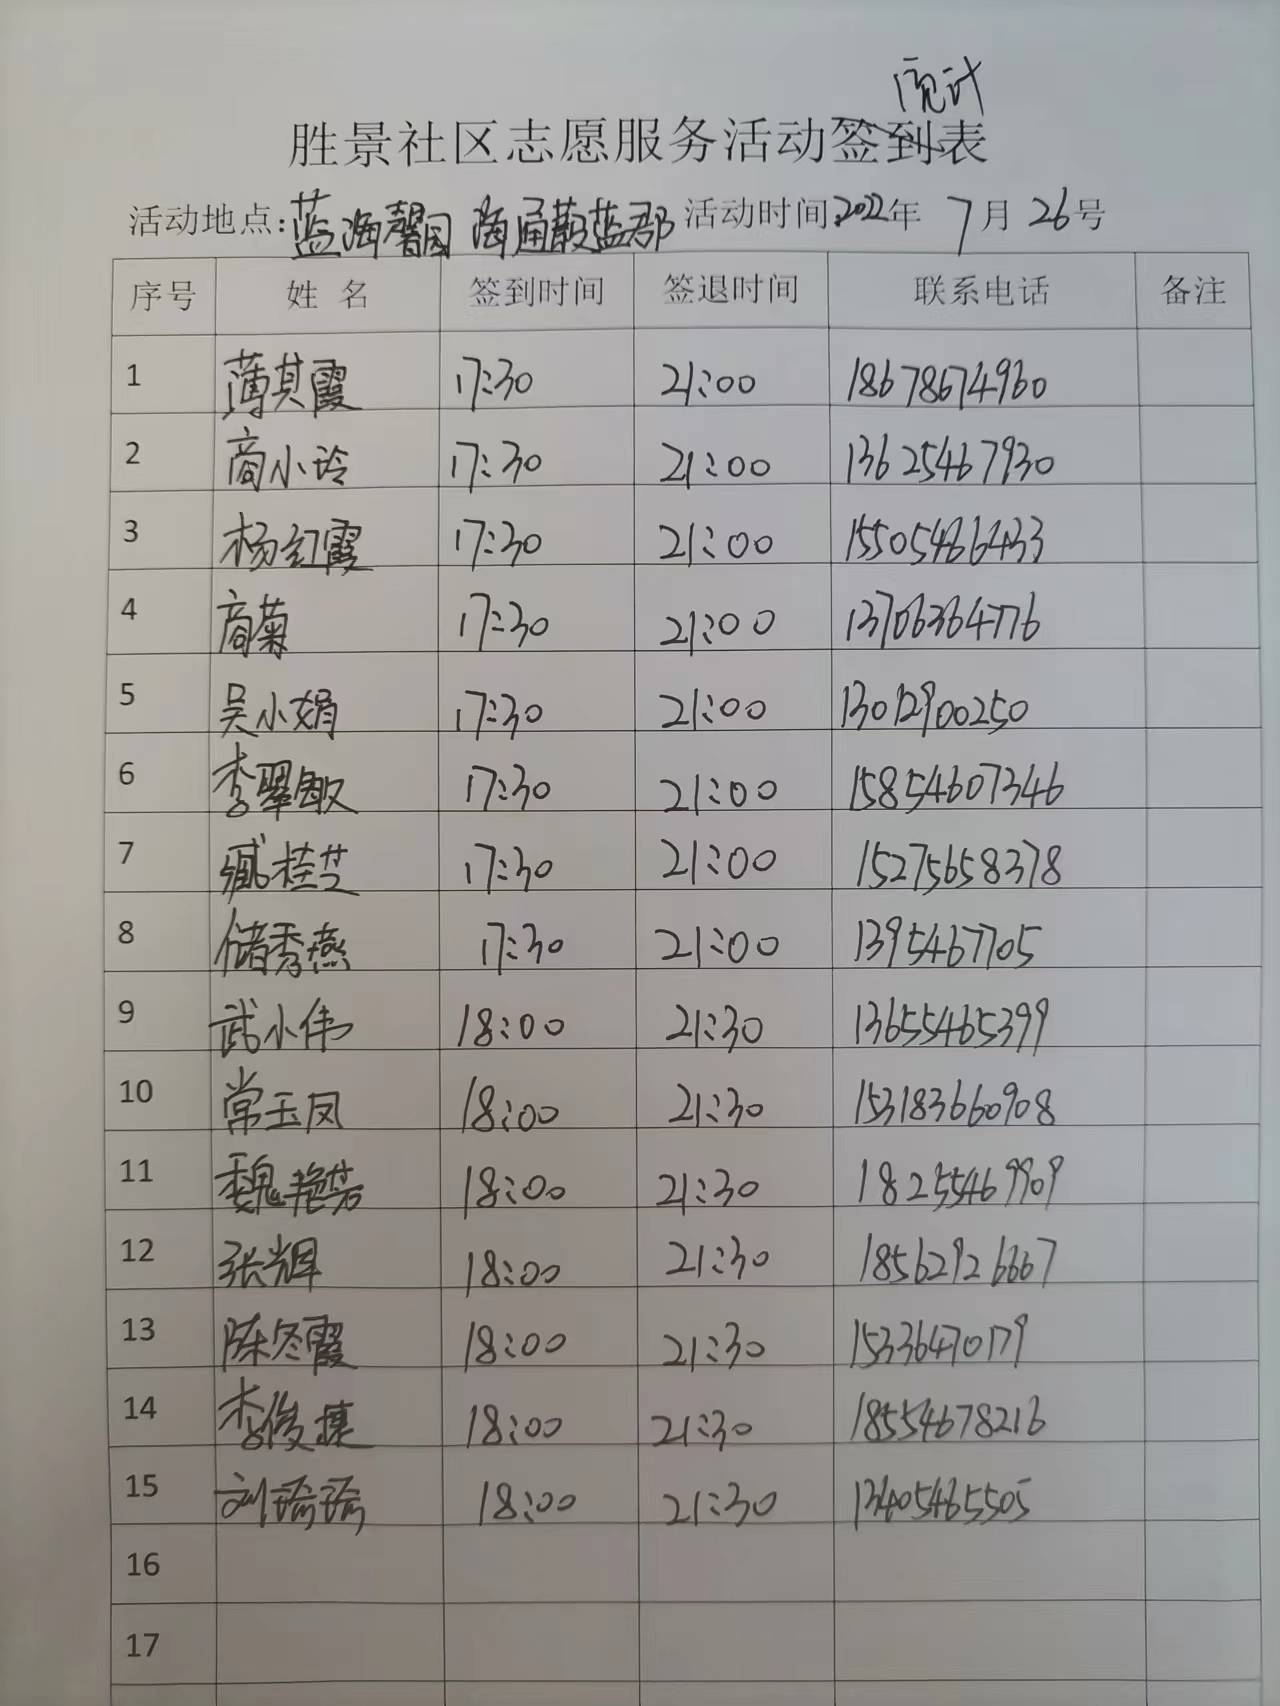 统计
胜景社区志愿服务活动签到表
活动地点:蓝海馨园 海通蔚蓝郡 活动时间:2022年 7月26号
序号 姓 名 签到时间 签退时间 联系电话 备注
1 薄其霞 17:30 21:00 18678674960
2 商小玲 17:30 21:00 13625467930
3 杨红霞 17:30 21:00 15505486433
4 商菊 17:30 21:00 13706364776
5 吴小娟 17:30 21:00 13012900250
6 李翠敏 17:30 21:00 15854607346
7 臧桂芝 17:30 21:00 15275658378
8 储秀燕 17:30 21:00 1395467705
9 武小伟 18:00 21:30 13655465399
10 常玉凤 18:00 21:30 153183660908
11 魏艳芳 18:00 21:30 18255469909
12 张辉 18:00 21:30 18562926667
13 陈冬霞 18:00 21:30 15336470179
14 李俊 18:00 21:30 18554678216
15 刘瑜瑜 18:00 21:30 13405465505
16
17